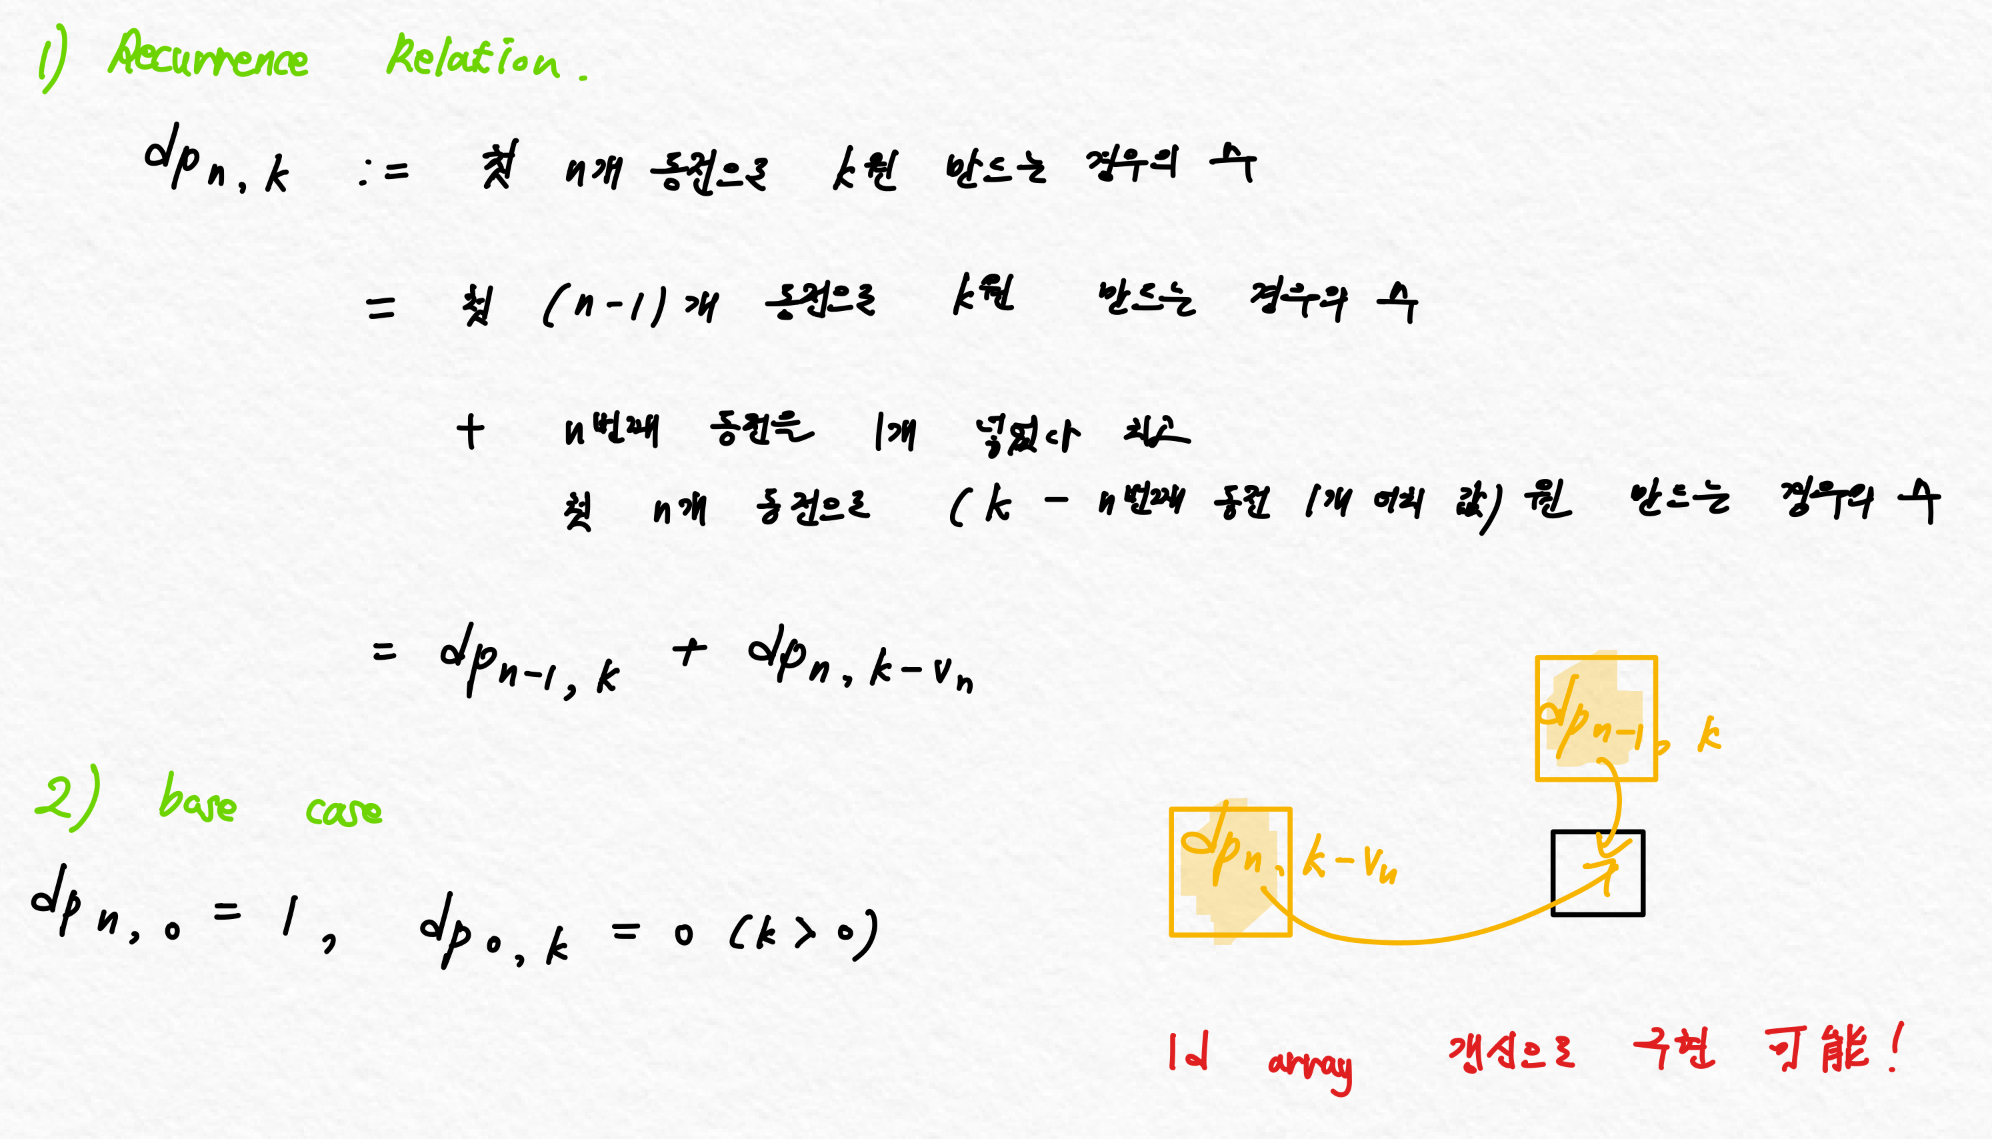 1) Recurrence Relation.
dp_{n, k} := 첫 n개 동전으로 k원 만드는 경우의 수
= 첫 (n-1)개 동전으로 k원 만드는 경우의 수
+ n번째 동전을 1개 넣었다 치고
첫 n개 동전으로 (k - n번째 동전 1개 어치 값)원 만드는 경우의 수
= dp_{n-1, k} + dp_{n, k-v_n}
dp_{n-1, k}
2) base case
dp_{n, k-v_n}
dp_{n, 0} = 1, dp_{0, k} = 0 (k > 0)
1d array 갱신으로 구현 可能!